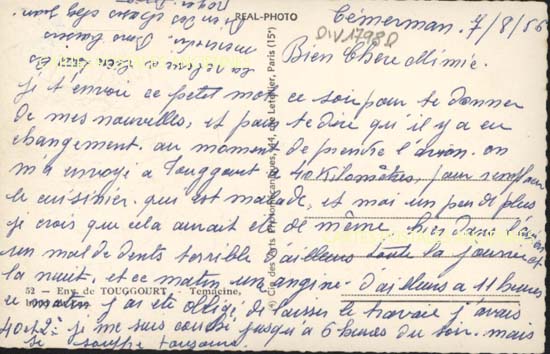 REAL-PHOTO
7/8/56
DIV1798D
Bien Chere Mimie.
je t'envoie ce petit mot ce soir pour te donner
de mes nouvelles, et pour te dire qu'il y a eu
changement. au moment de prendre l'avion. on
m'a envoyé a Touggourt a 40 Kilomètres, pour remplacer
le cuisinier qui est malade, et moi un peu de plus
je crois que cela aurait été de même, hier dans l'avion
un mal de dents terrible d'ailleurs toute la journée et
la nuit, et ce matin un angine d'ailleurs a 11 heures
ce matin j'ai été obligé de laisser le travail j'avais
40 et 2 je me suis couché jusqu'a 6 heures du soir. mais
je souffre toujours
52 - Env. de TOUGGOURT - Temacine,
Cie des Arts Photomécaniques, 44, rue Letellier, Paris (15e)